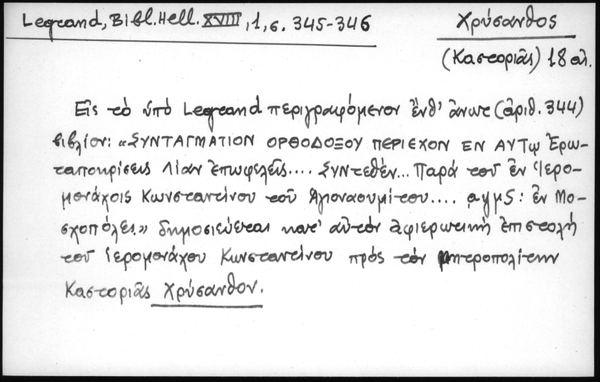 Legrand, Bibl. Hell. XVIII, 1, σ. 345-346
Χρύσανθος
(Καστοριᾶς) 18 αἰ.
Εἰς τὸ ὑπὸ Legrand περιγραφόμενον ἔνθ' ἄνωτ (ἀριθ. 344)
βιβλίον: «ΣΥΝΤΑΓΜΑΤΙΟΝ ΟΡΘΟΔΟΞΟΥ ΠΕΡΙΕΧΟΝ ΕΝ ΑΥΤῼ Ἐρω-
ταποκρίσεις λίαν ἐπωφελεῖς.... Συντεθὲν... Παρὰ τοῦ ἐν Ἱερο-
μονάχοις Κωνσταντίνου τοῦ Ἁγιοναουμίτου.... αψμς: ἐν Μο-
σχοπόλει» δημοσιεύεται κατ' αὐτὸν ἀφιερωτικὴ ἐπιστολὴ
τοῦ ἱερομονάχου Κωνσταντίνου πρὸς τὸν μητροπολίτην
Καστοριᾶς Χρύσανθον.